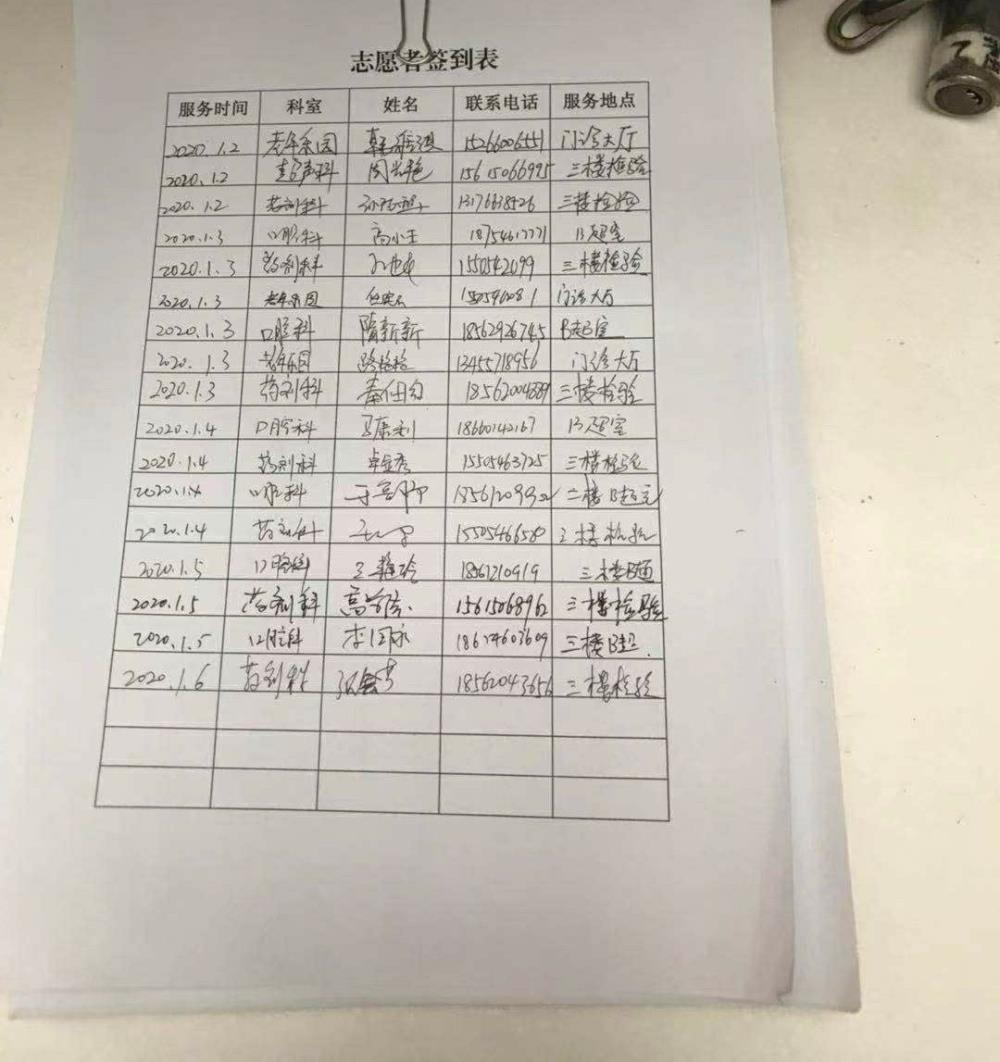 志愿者签到表
服务时间 科室 姓名 联系电话 服务地点
2020.1.2 老年乐园 15266006551 门诊大厅
2020.1.2 超声科 15615066995 三楼检验
2020.1.2 药剂科 13176638526 三楼检验
2020.1.3 口腔科 高小玉 18754617771 B超室
2020.1.3 药剂科 1550542099 三楼检验
2020.1.3 老年乐园 门诊大厅
2020.1.3 口腔科 隋新新 18562926745 B超室
2020.1.3 老年乐园 路检检 13455718956 门诊大厅
2020.1.3 药剂科 三楼检验
2020.1.4 口腔科 马康利 18660142167 B超室
2020.1.4 药剂科 15505463725 三楼检验
2020.1.4 口腔科 B超室
2020.1.4 药剂科 15505466580 三楼检验
2020.1.5 口腔科 18561210919 三楼B超
2020.1.5 药剂科 15615068962 三楼检验
2020.1.5 口腔科 18674603609 三楼B超
2020.1.6 药剂科 18562043656 三楼检验